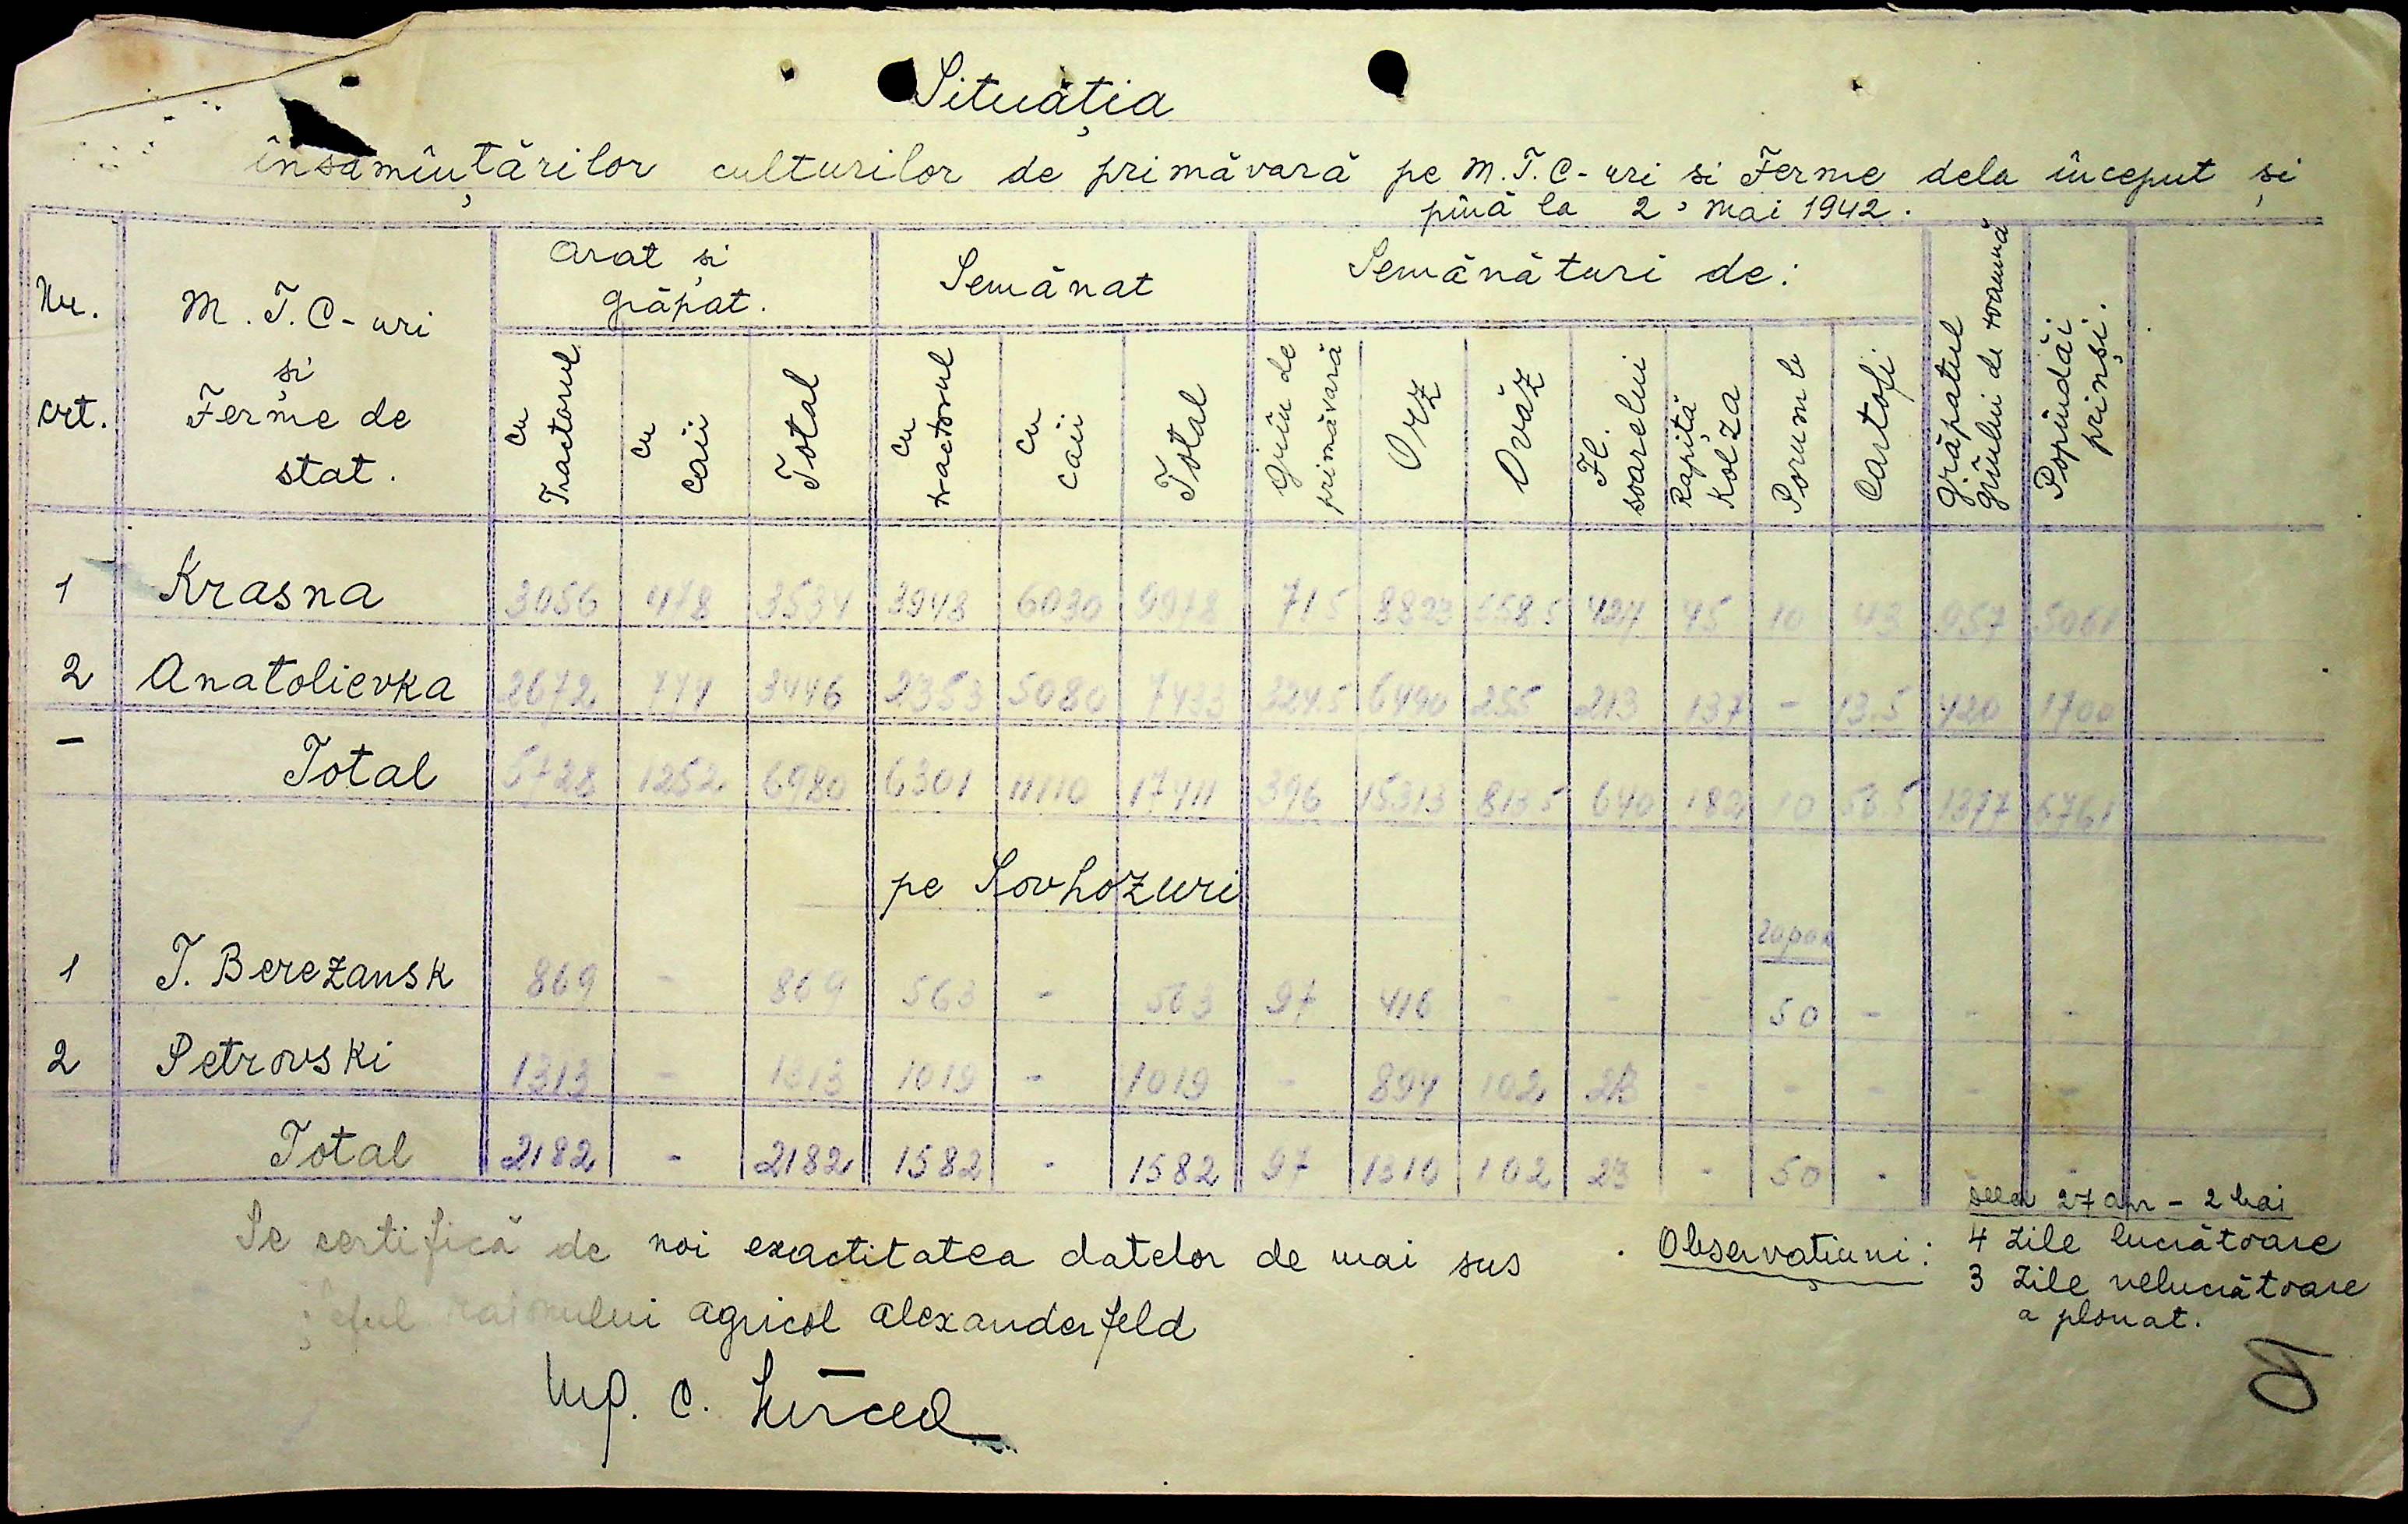 Situația
însămînțărilor culturilor de primăvară pe M.T.C-uri si Ferme dela început și
pînă la 2 Mai 1942.
Nr. crt.
M.T.C-uri și Ferme de stat.
Arat și grăpat.
Semănat
Semănături de:
cu Tractorul
cu caii
Total
cu tractorul
cu caii
Total
Grîu de primăvară
Orz
Ovăz
Fl. soarelui
Rapiță Kolza
Porumb
Cartofi
Grăpatul grîului de toamnă
Popîndăi prinși.
1 Krasna 3056 478 3534 3948 6030 9978 715 8823 558 5 427 45 10 43 957 5061
2 Anatolievka 2672 774 3446 2353 5080 7433 324.5 6490 255 213 137 - 13.5 420 1700
- Total 5728 1252 6980 6301 11110 17411 396 15313 813 5 640 182 10 56.5 1377 6761
pe Sovhozuri
1 T. Berezansk 869 - 869 563 - 563 97 416 - - - 50 - - -
2 Petrovski 1313 - 1313 1019 - 1019 - 894 102 23 - - - - -
Total 2182 - 2182 1582 - 1582 97 1310 102 23 - 50 - - -
Se certifică de noi exactitatea datelor de mai sus
Șeful raionului agricol Alexanderfeld
C.
Observațiuni:
27 Apr - 2 Mai
4 zile lucrătoare
3 zile nelucrătoare
a plouat.